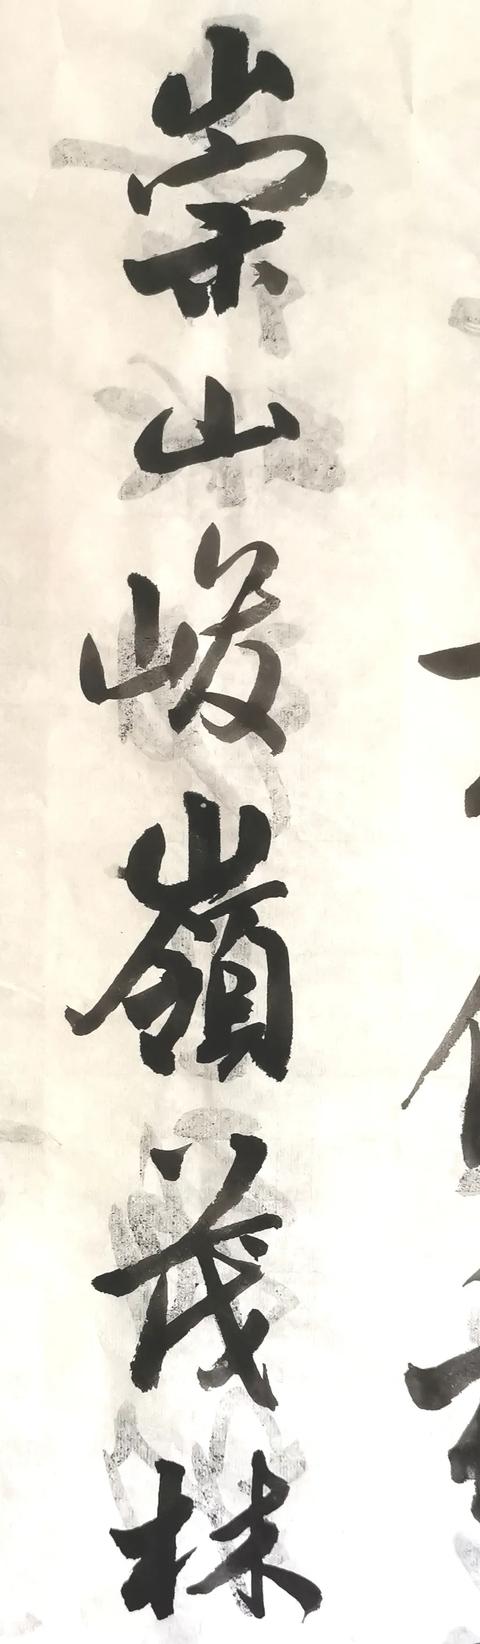 崇山峻嶺茂林